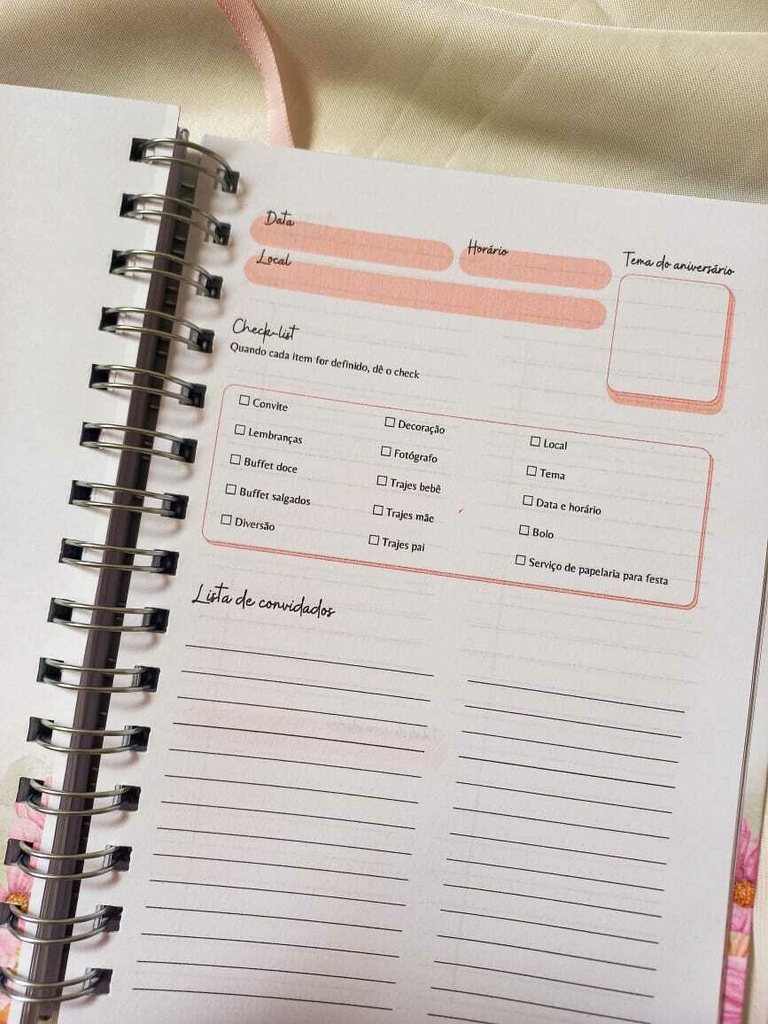 Data
Horário
Tema do aniversário
Local
Check-list
Quando cada item for definido, dê o check
Convite
Lembranças
Buffet doce
Buffet salgados
Diversão
Decoração
Fotógrafo
Trajes bebê
Trajes mãe
Trajes pai
Local
Tema
Data e horário
Bolo
Serviço de papelaria para festa
Lista de convidados